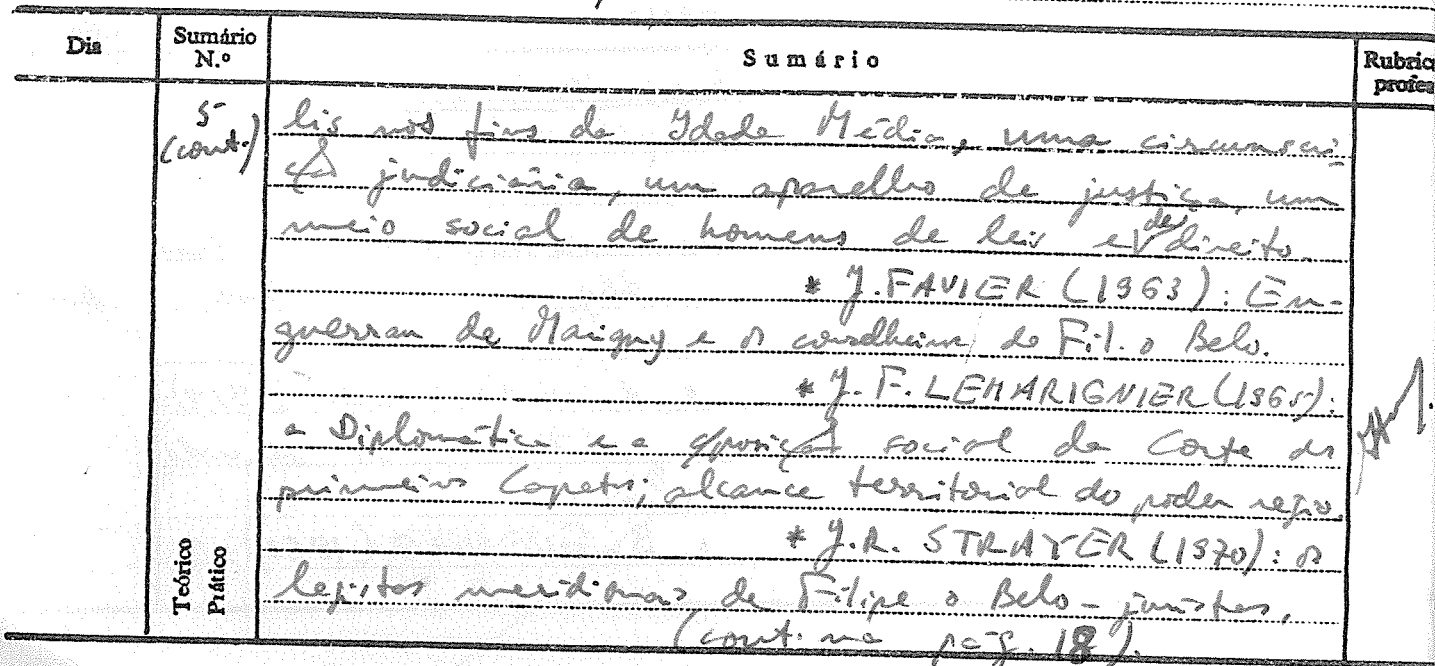 Dia
Sumário N.º
Sumário
Rubric
profes
5
(cont.)
lis nos fins da Idade Média, uma circunscri-
ção judiciária, um aparelho de justiça, um
meio social de homens de leis e de direito.
* J. FAVIER (1963): En-
guerran de Marigny e os conselheiros de Fil. o Belo.
* J. F. LEMARIGNIER (1965):
a Diplomática e a social da Corte dos
primeiros Capetos; alcance territorial do poder régio.
* J. R. STRAYER (1970): os
legistas meridionais de Filipe o Belo - juristas,
(cont. na pág. 18).
Teórico
Prático